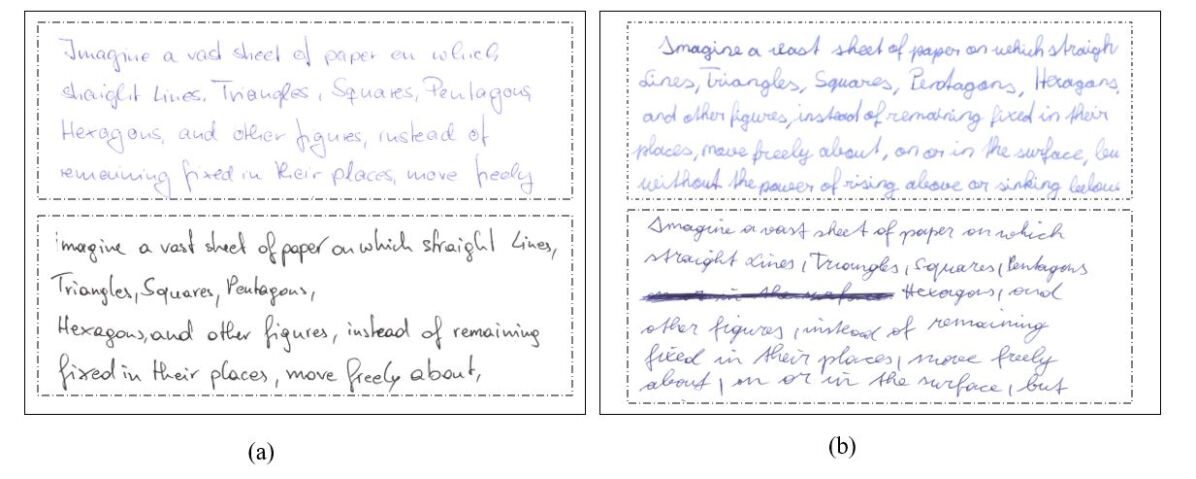 Imagine a vast sheet of paper on which
straight Lines, Triangles, Squares, Pentagons,
Hexagons, and other figures, instead of
remaining fixed in their places, move freely
imagine a vast sheet of paper on which straight Lines,
Triangles, Squares, Pentagons,
Hexagons, and other figures, instead of remaining
fixed in their places, move freely about,
(a)
Imagine a vast sheet of paper on which straigh
Lines, Triangles, Squares, Pentagons, Hexagons,
and other figures, instead of remaining fixed in their
places, move freely about, on or in the surface, bu
without the power of rising above or sinking below
Imagine a vast sheet of paper on which
straight Lines, Triangles, Squares, Pentagons
Hexagons, and
other figures, instead of remaining
fixed in their places, move freely
about, on or in the surface, but
(b)